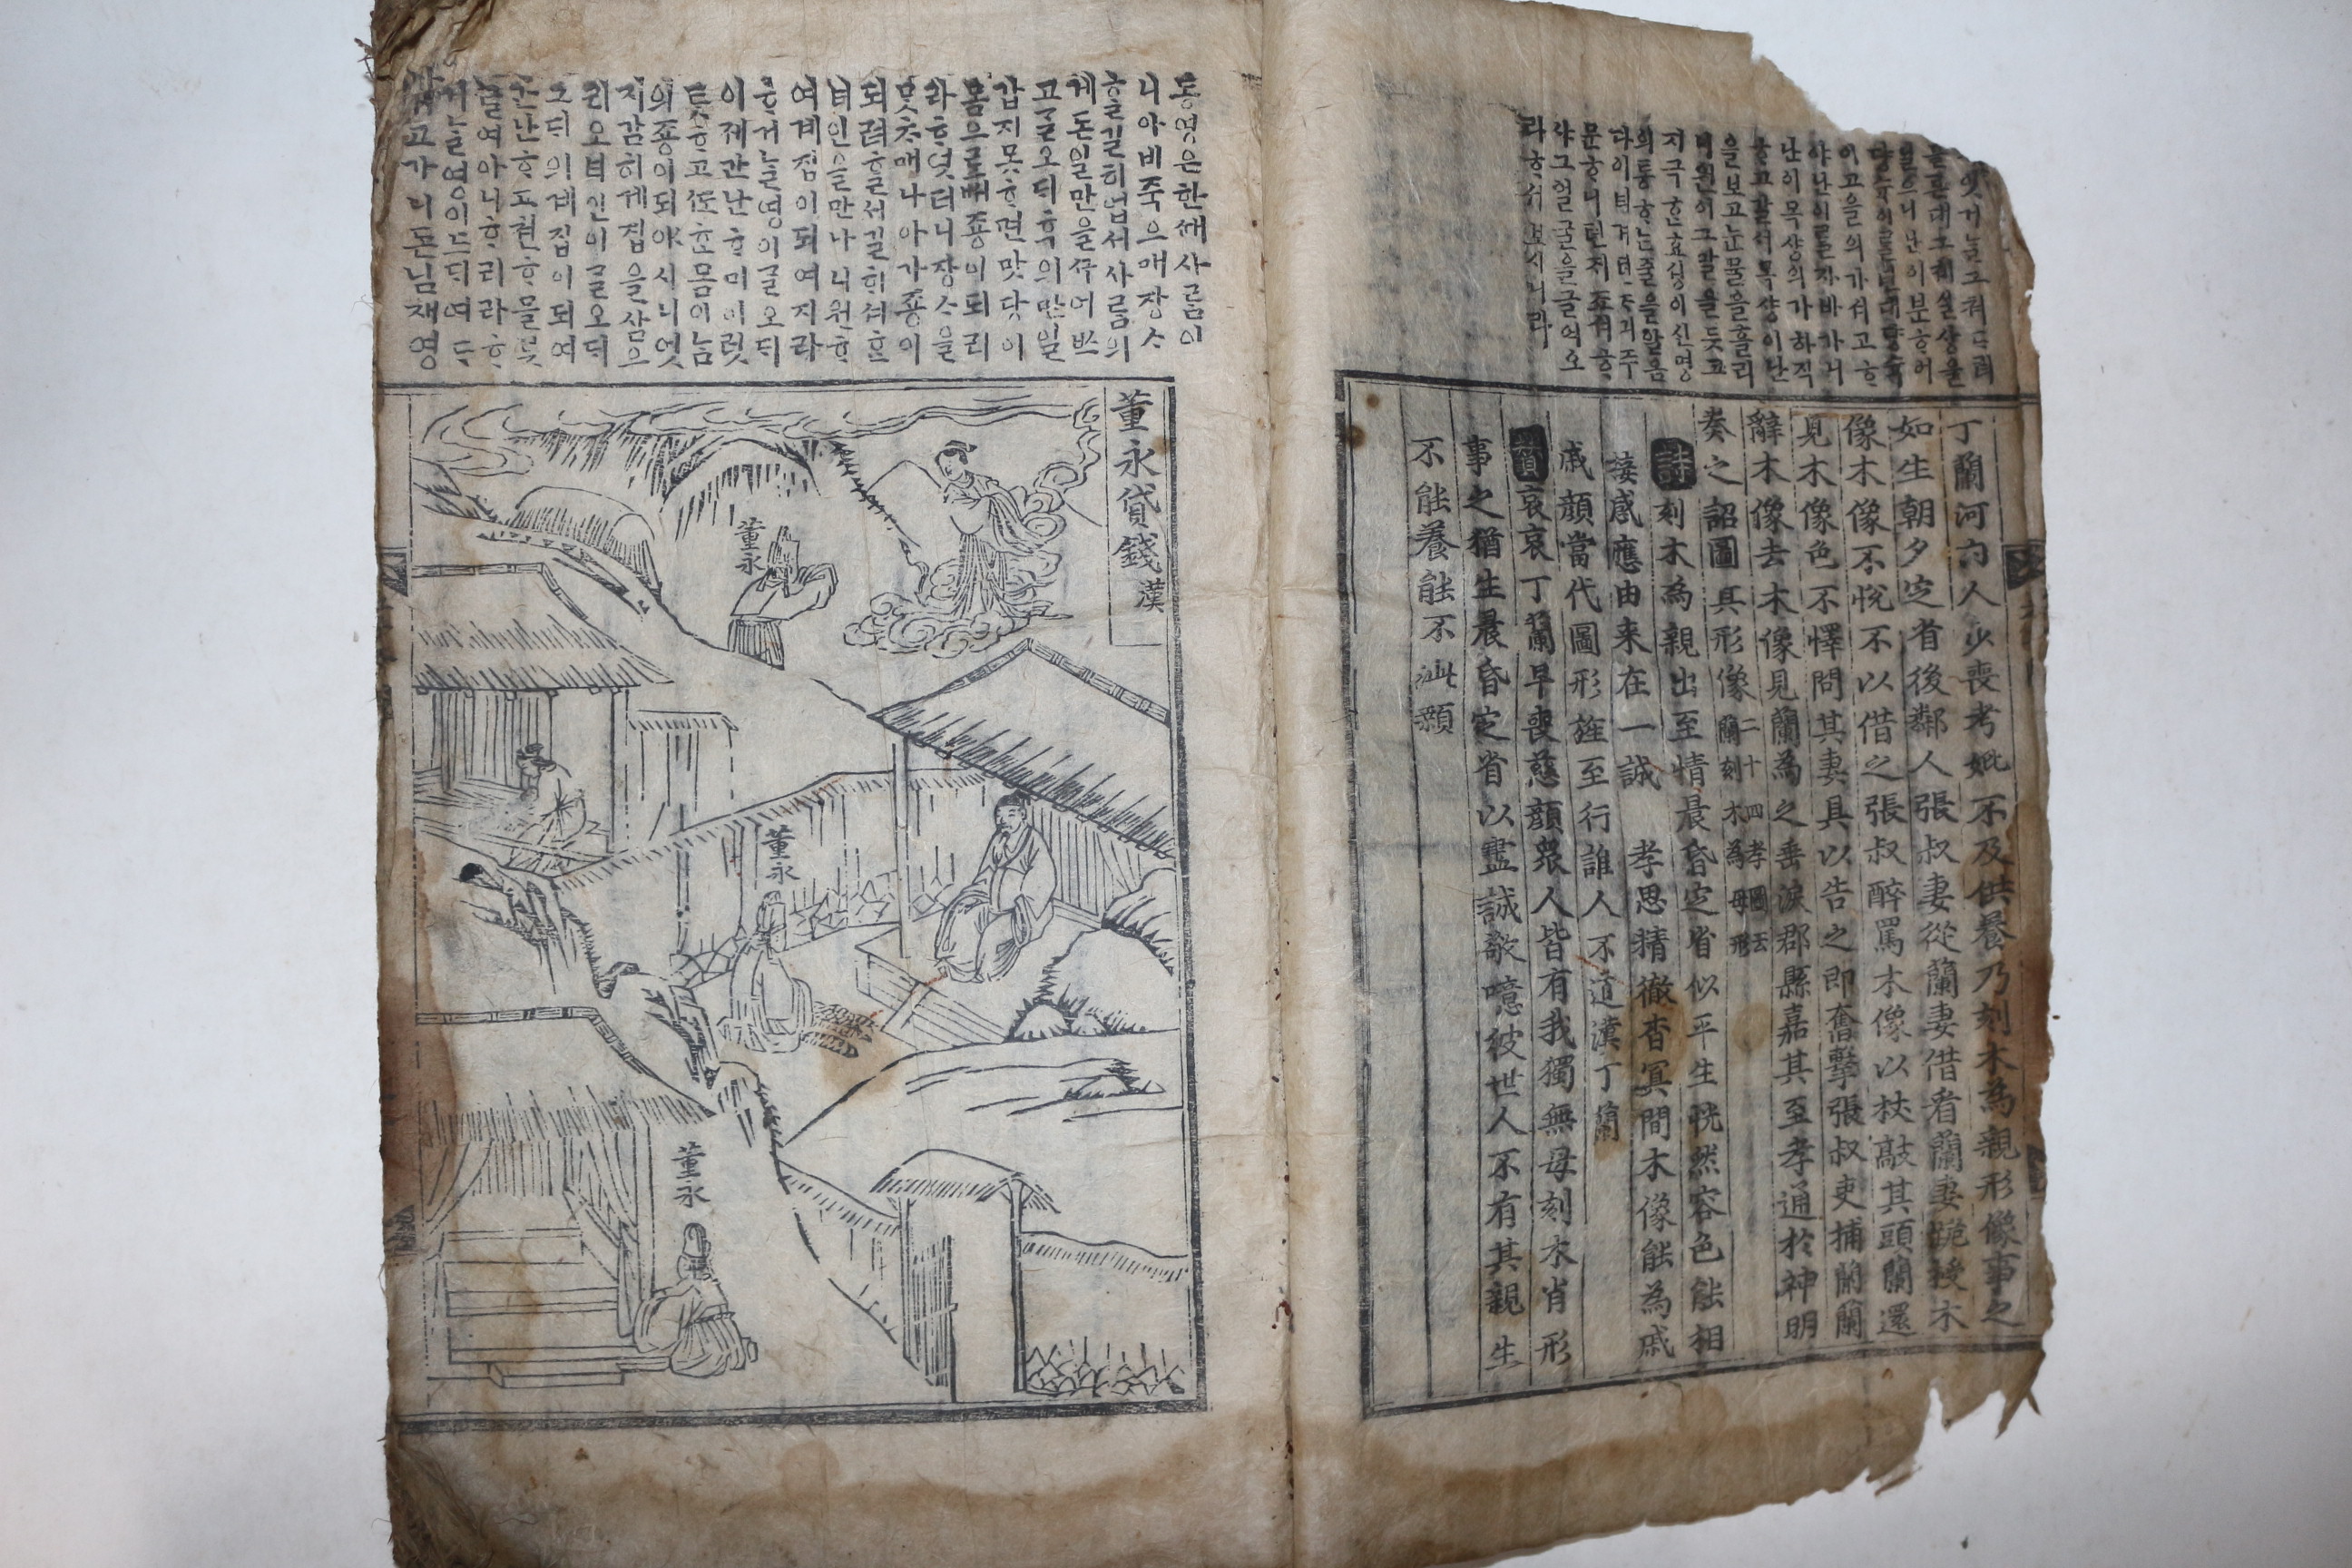 난이목샹의가하직
ᄒᆞ고갈ᄉᆡ목샹이난
을보고눈물을흘리
니원이그말을듯고
지극ᄒᆞᆫ효심이신명
의통ᄒᆞᄂᆞᆫ줄을알음
다이녀겨 주
문ᄒᆞ니텬ᄌᆡ죠셔ᄒᆞ
샤그얼굴을글여오
라ᄒᆞ셔보시니라
丁蘭河內人少喪考妣不及供養乃刻木為親形像事之
如生朝夕定省後鄰人張叔妻從蘭妻借看蘭妻跪授木
像木像不悅不以借之張叔醉罵木像以杖敲其頭蘭還
見木像色不懌問其妻具以告之即奮擊張叔吏捕蘭蘭
辭木像去木像見蘭為之垂淚郡縣嘉其至孝通於神明
奏之詔圖其形像 二十四孝圖云蘭刻木為母形
詩 刻木為親出至情晨昏定省似平生恍然容色能相
接感應由來在一誠 孝思精徹杳冥間木像能為戚
戚顏當代圖形旌至行誰人不道漢丁蘭
贊 哀哀丁蘭早喪慈顏衆人皆有我獨無母刻木肖形
事之猶生晨昏定省以盡誠敬噫彼世人不有其親生
不能養能不泚顙
동영은한쌔사ᄅᆞᆷ이
니아비죽으매장ᄉᆞ
ᄒᆞᆯ길히업서사ᄅᆞᆷ의
게돈일만을ᄭᅮ어ᄡᅳ
고ᄀᆞᆯ오ᄃᆡ후의만일
갑지못ᄒᆞ면맛당이
몸으로ᄡᅥ죵이되리
라ᄒᆞ엿더니장ᄉᆞ을
ᄆᆞᆺᄎᆞ매나아가죵이
되려ᄒᆞᆯᄉᆡ길ᄒᆡ셔ᄒᆞᆫ
녀인을만나니원ᄒᆞ
여계집이되여지라
ᄒᆞ거ᄂᆞᆯ영이ᄀᆞᆯ오ᄃᆡ
이제간난ᄒᆞ미이럿
ᄐᆞᆺᄒᆞ고ᄯᅩᄒᆞᆫ몸이ᄂᆞᆷ
의죵이되야시니엇
지감히계집을삼으
리오녀인이ᄀᆞᆯ오ᄃᆡ
그ᄃᆡ의계집이되여
간난ᄒᆞ고쳔ᄒᆞ믈븟
그려아니ᄒᆞ리라ᄒᆞ
거ᄂᆞᆯ영이드ᄃᆡ여ᄃᆞ
리고가니돈님재영
董永貸錢 漢
董永
董永
董永